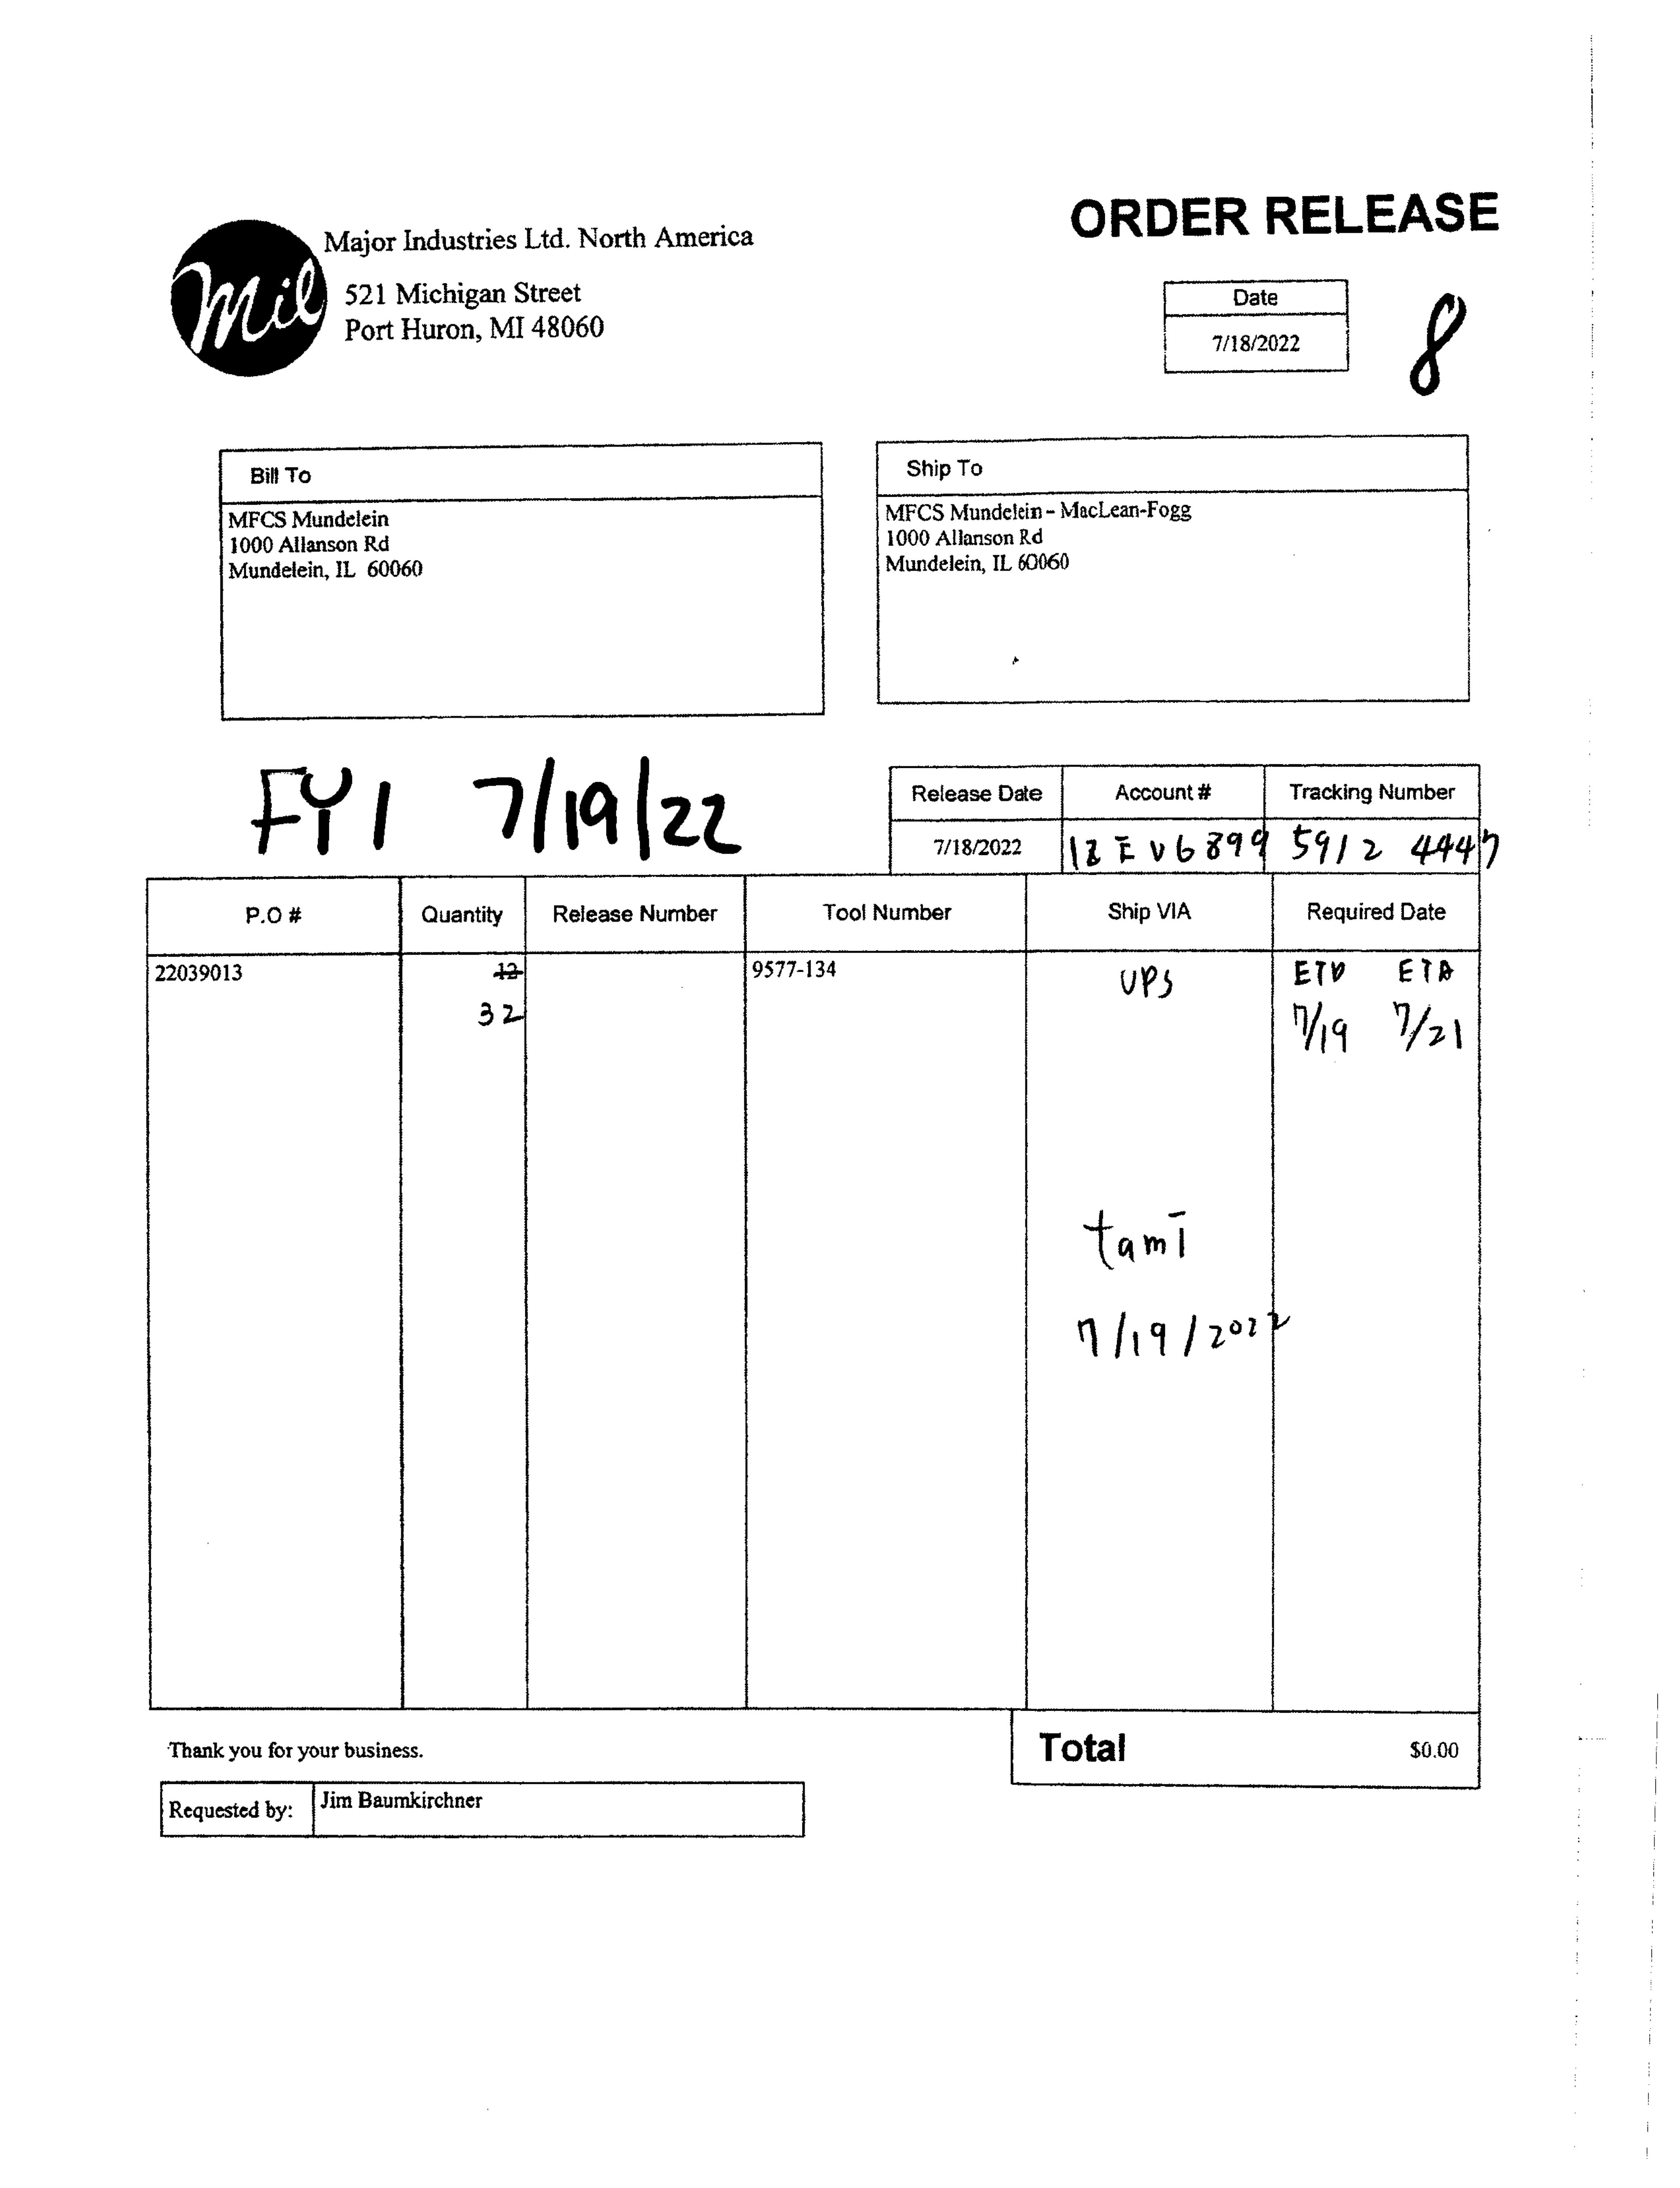 ORDER RELEASE
Mil
Major Industries Ltd. North America
521 Michigan Street
Port Huron, MI 48060
Date
7/18/2022
8
Bill To
MFCS Mundelein
1000 Allanson Rd
Mundelein, IL 60060
Ship To
MFCS Mundelein - MacLean-Fogg
1000 Allanson Rd
Mundelein, IL 60060
FYI 7/19/22
Release Date Account # Tracking Number
7/18/2022 1Z E V6 899 5912 4447
P.O # Quantity Release Number Tool Number Ship VIA Required Date
22039013 12 9577-134 UPS ETD ETA
32 7/19 7/21
tami
7/19/2022
Thank you for your business.
Total $0.00
Requested by: Jim Baumkirchner